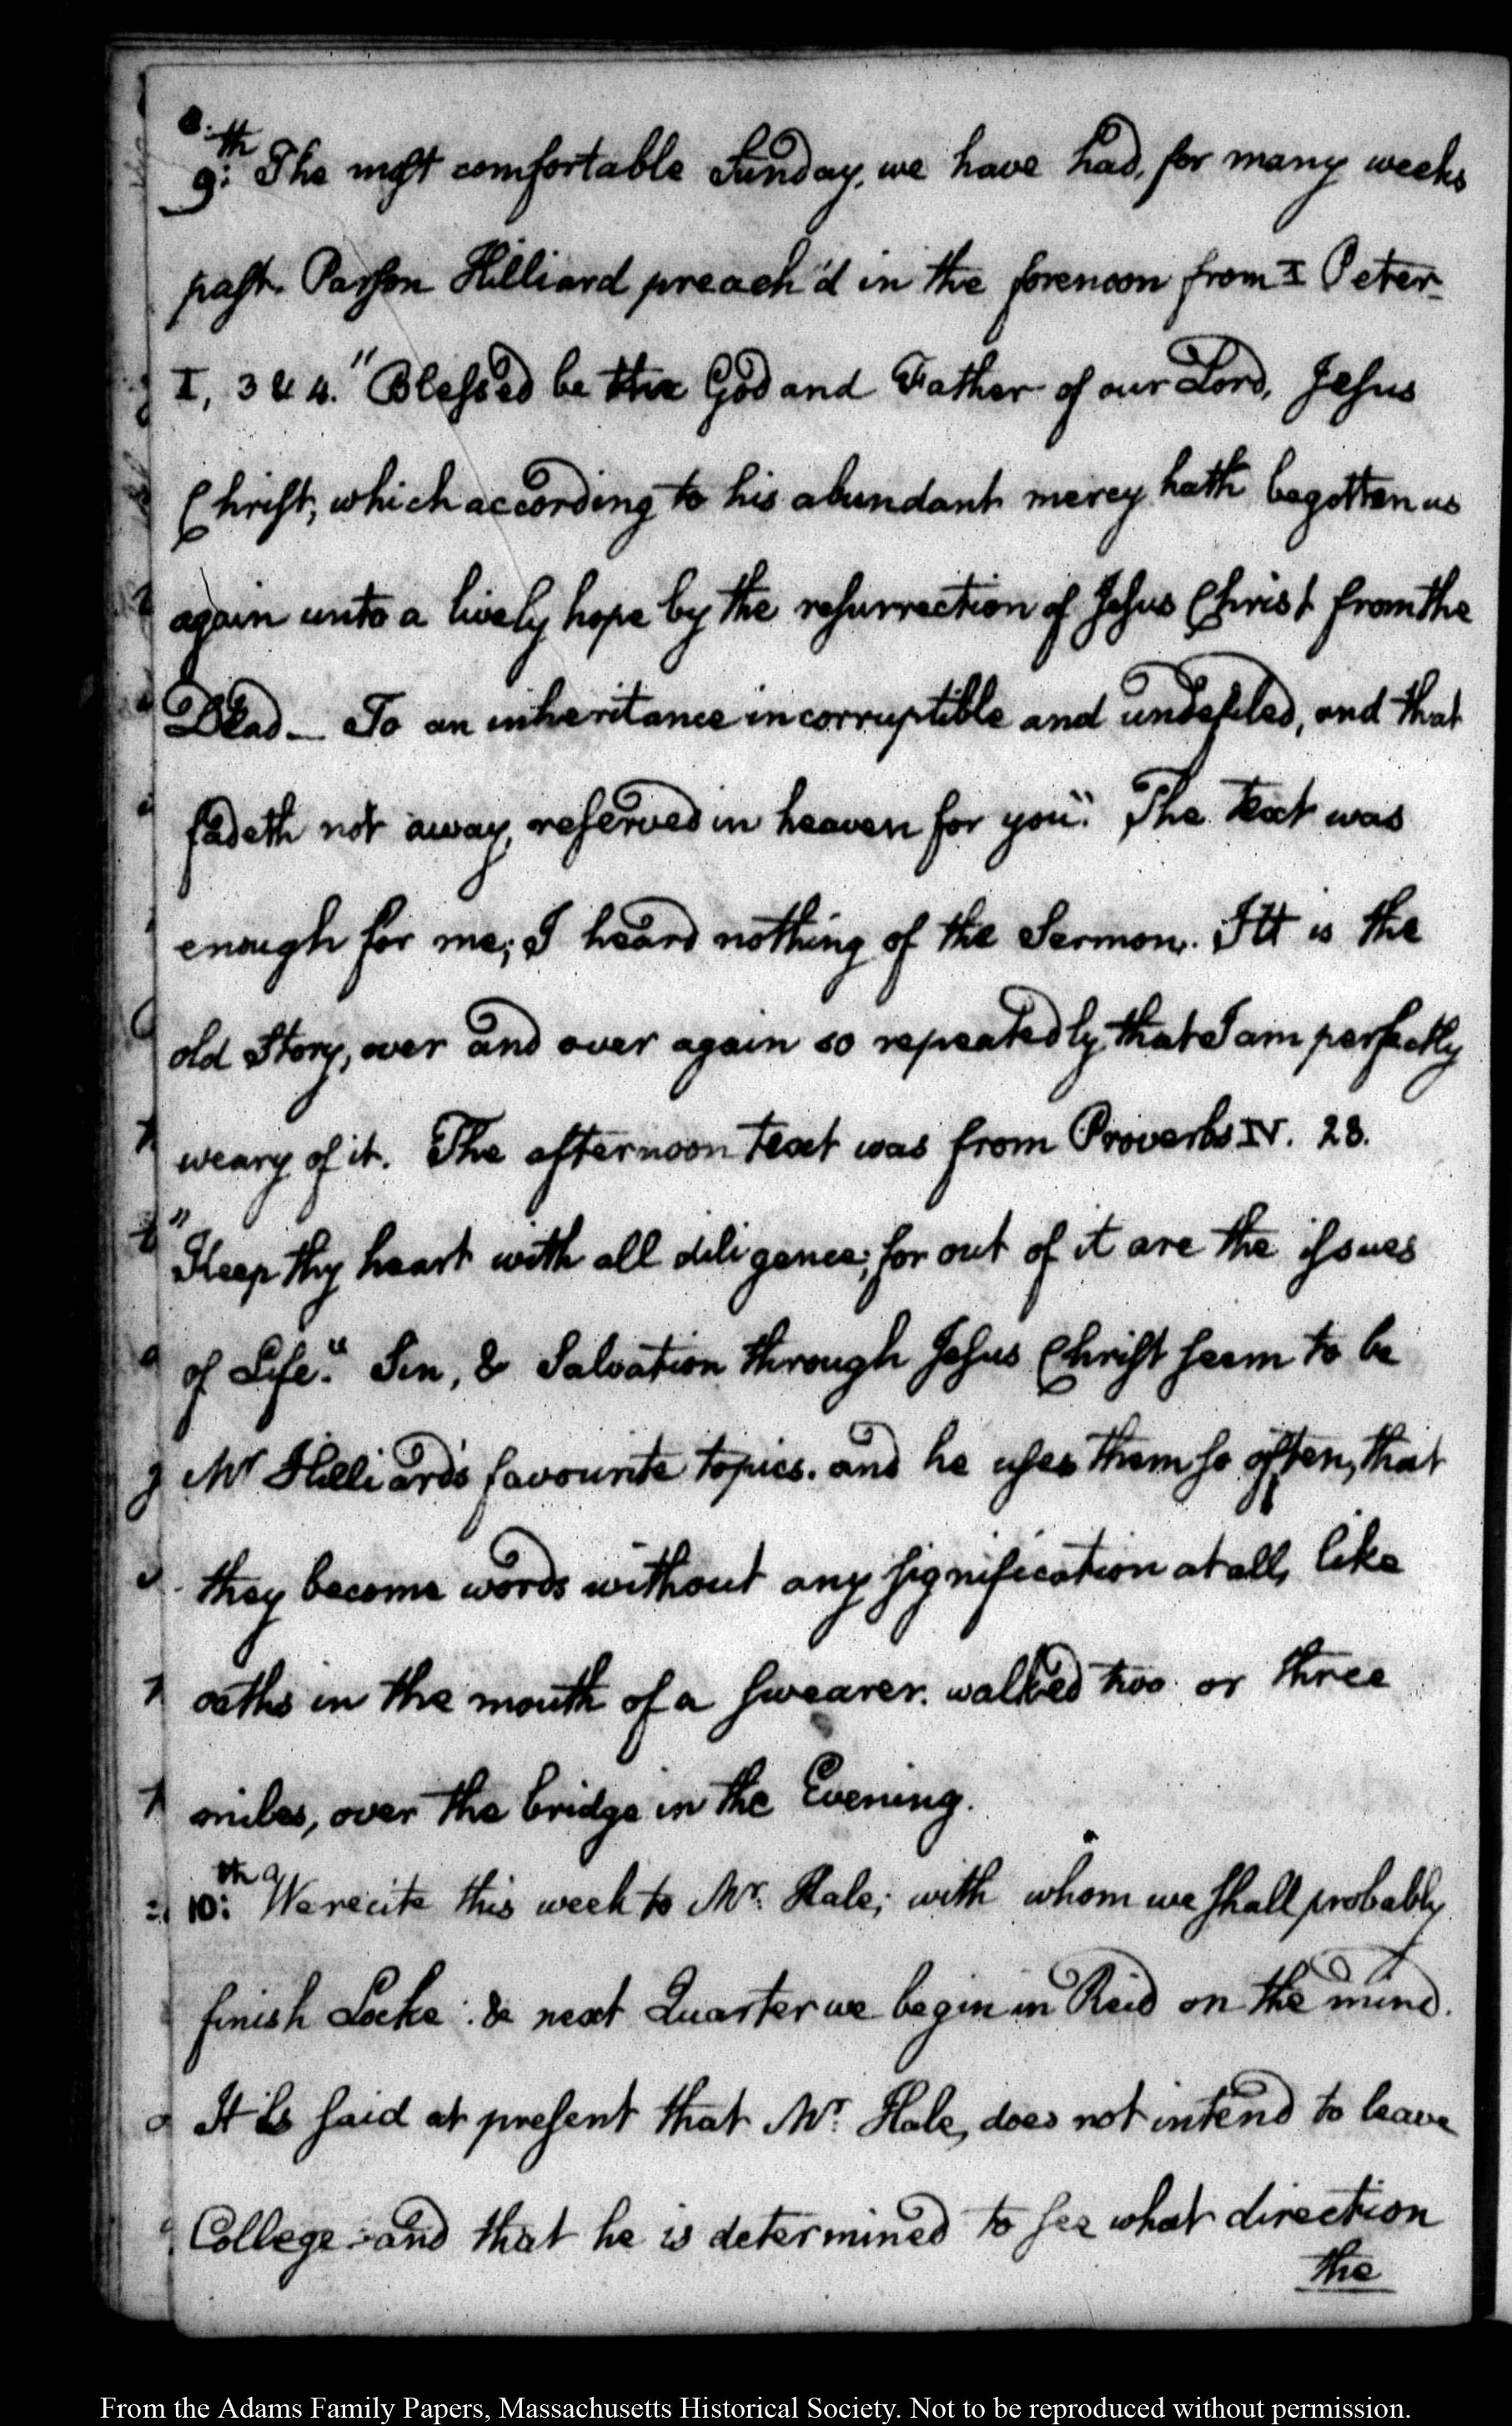 9:th The most comfortable Sunday, we have had, for many weeks
past. Parson Hilliard preach'd in the forenoon from I Peter
I, 3 & 4. "Blessed be the God and Father of our Lord, Jesus
Christ, which according to his abundant mercy hath begotten us
again unto a lively hope by the resurrection of Jesus Christ from the
Dead — To an inheritance incorruptible and undefiled, and that
fadeth not away, reserved in heaven for you." The text was
enough for me; I heard nothing of the Sermon. Itt is the
old Story, over and over again so repeatedly, that I am perfectly
weary of it. The afternoon text was from Proverbs IV. 23.
"Keep thy heart with all diligence; for out of it are the issues
of Life." Sin, & Salvation through Jesus Christ seem to be
Mr Hilliard's favourite topics. and he uses them so often, that
they become words without any signification at all, like
oaths in the mouth of a swearer. walked two or three
miles, over the bridge in the Evening.
10:th We recite this week to Mr. Hale; with whom we shall probably
finish Locke: & next Quarter we begin in Reid on the mind.
It is said at present that Mr. Hale, does not intend to leave
College: and that he is determined to see what direction
the
From the Adams Family Papers, Massachusetts Historical Society. Not to be reproduced without permission.